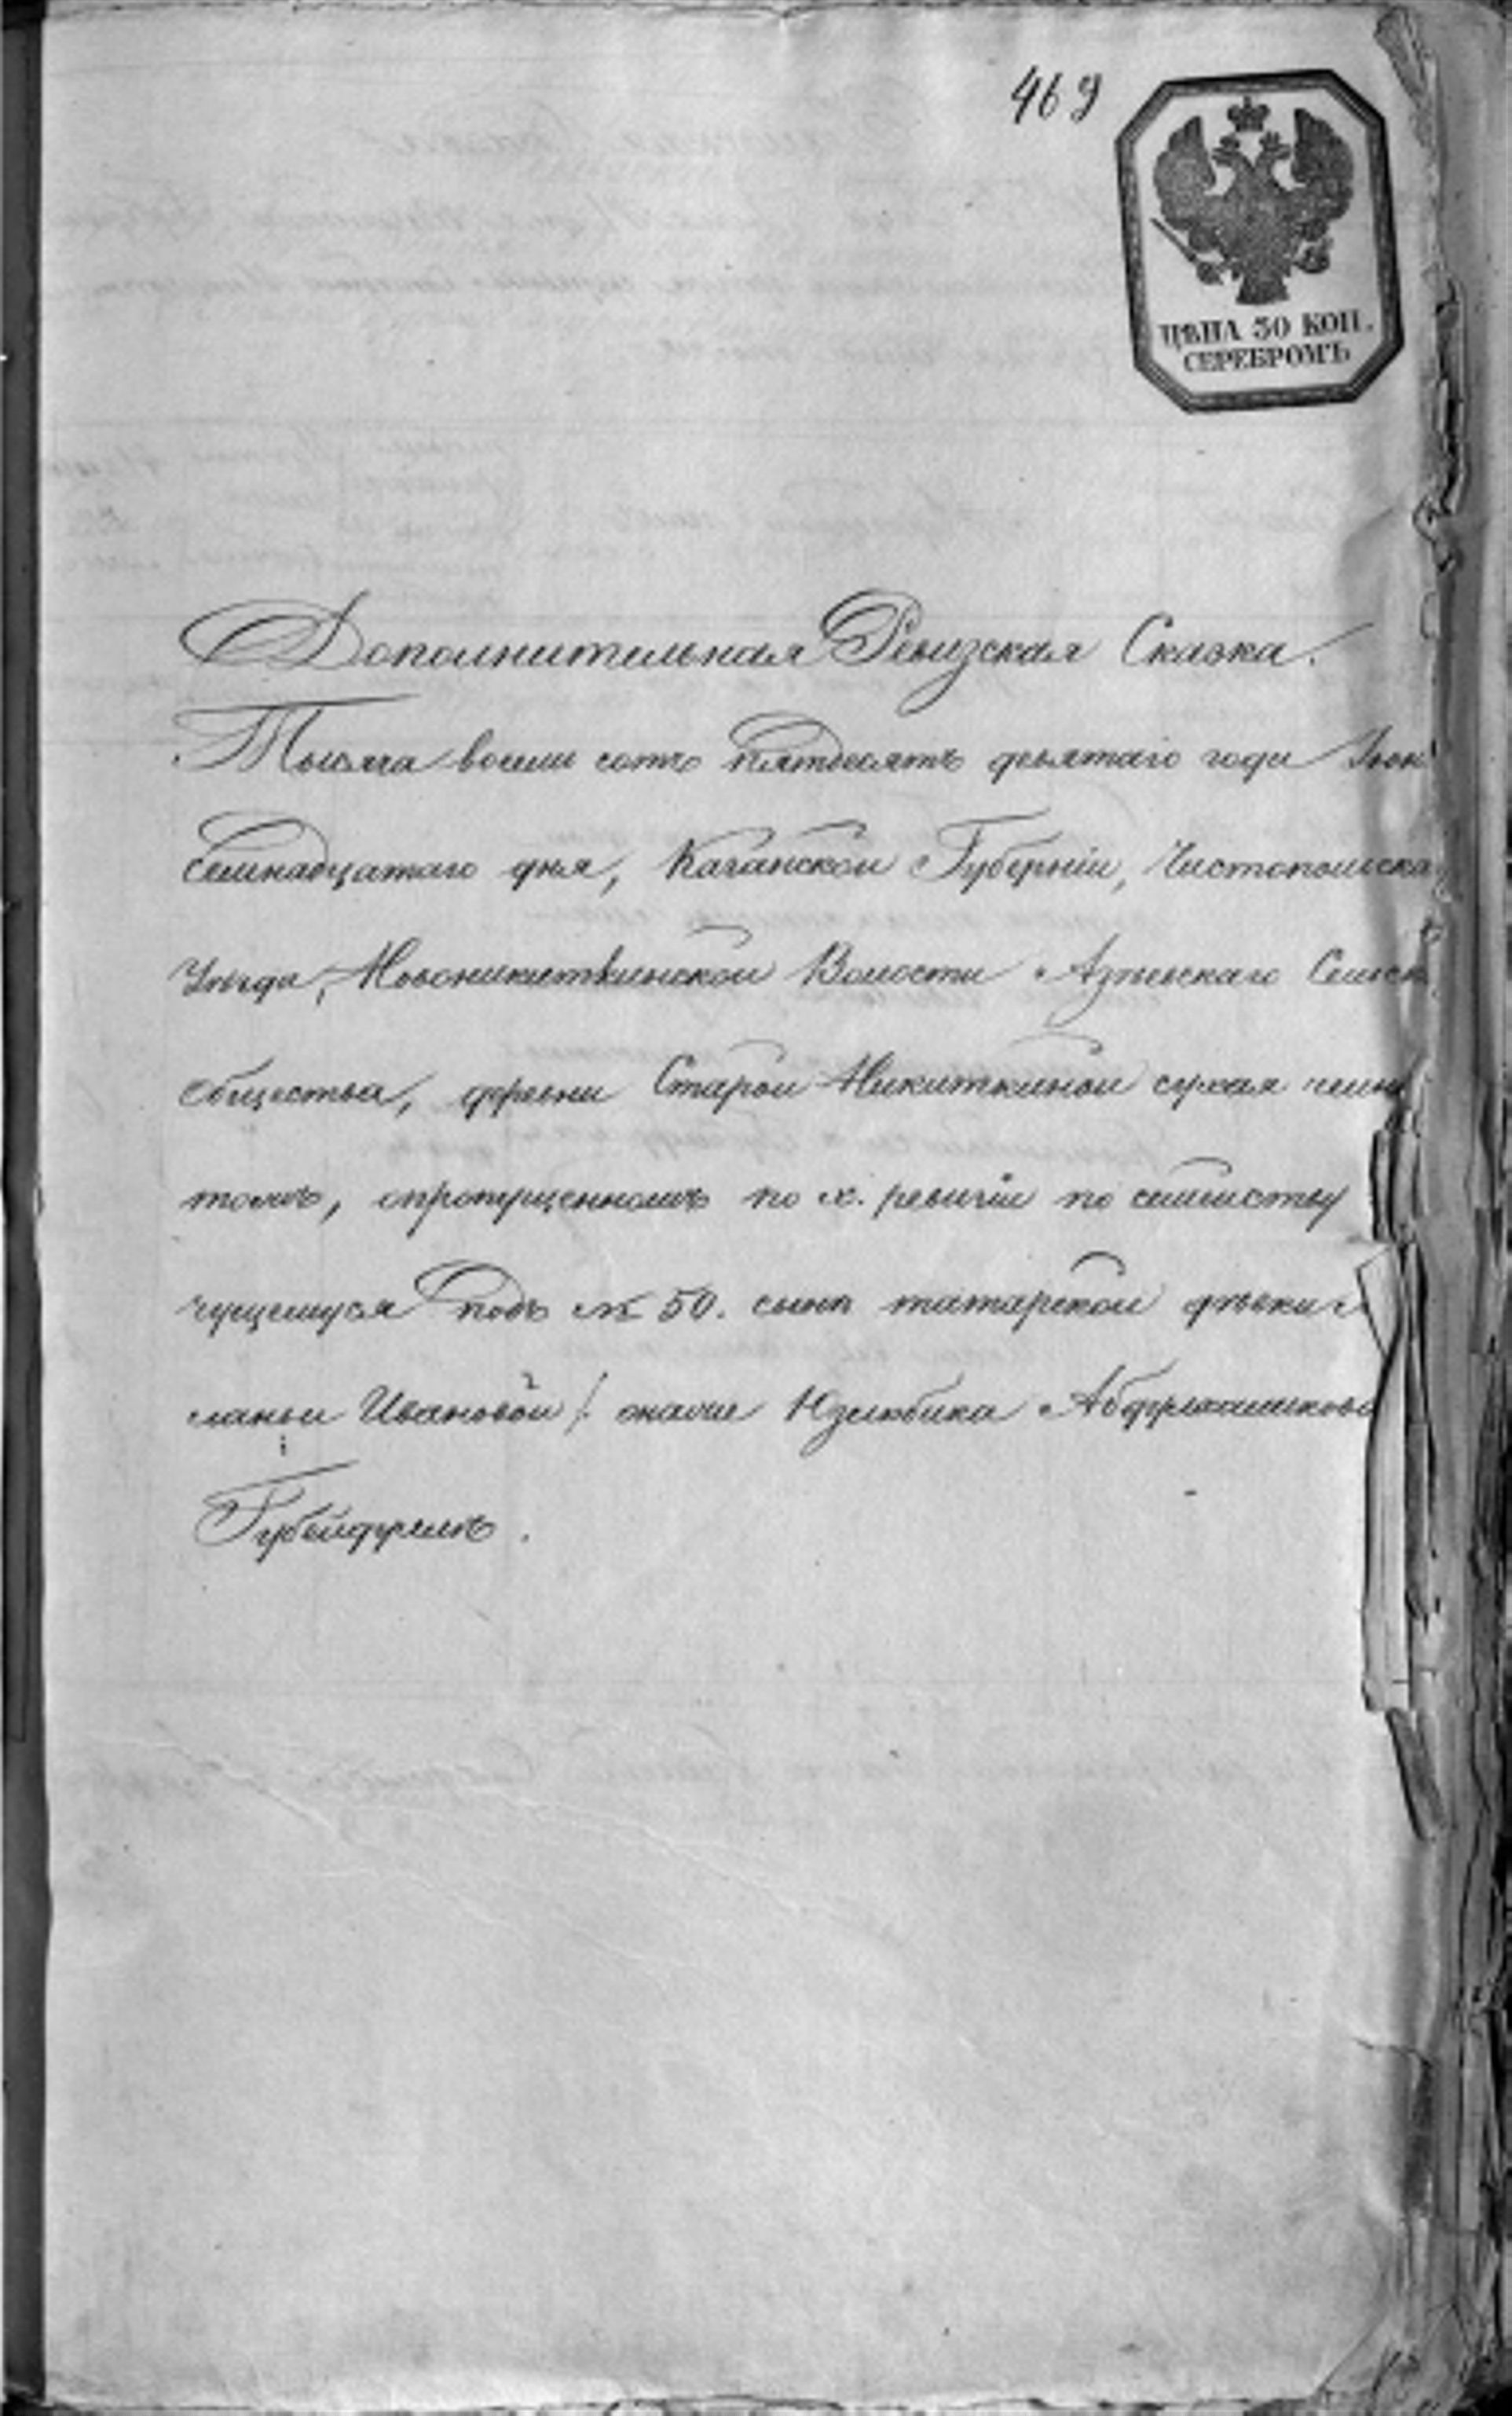 469
ЦѢНА 30 КОП.
СЕРЕБРОМЪ
Дополнительная Ревизская Сказка.
Тысяча восемь сотъ пятдесятъ девятаго года Іюн
Семнадцатаго дня, Казанской Губерніи, Чистопольска
Уѣзда, Новоникиткинской Волости Азѣевскаго Сельск
общества, деревни Старой Никиткиной
томъ, опропущенномъ по X. ревизіи по семейству
чущемуся подъ № 50. сынѣ татарской дѣвки
ланьи Ивановой /: она же Юзелбика
Губейдулѣ.